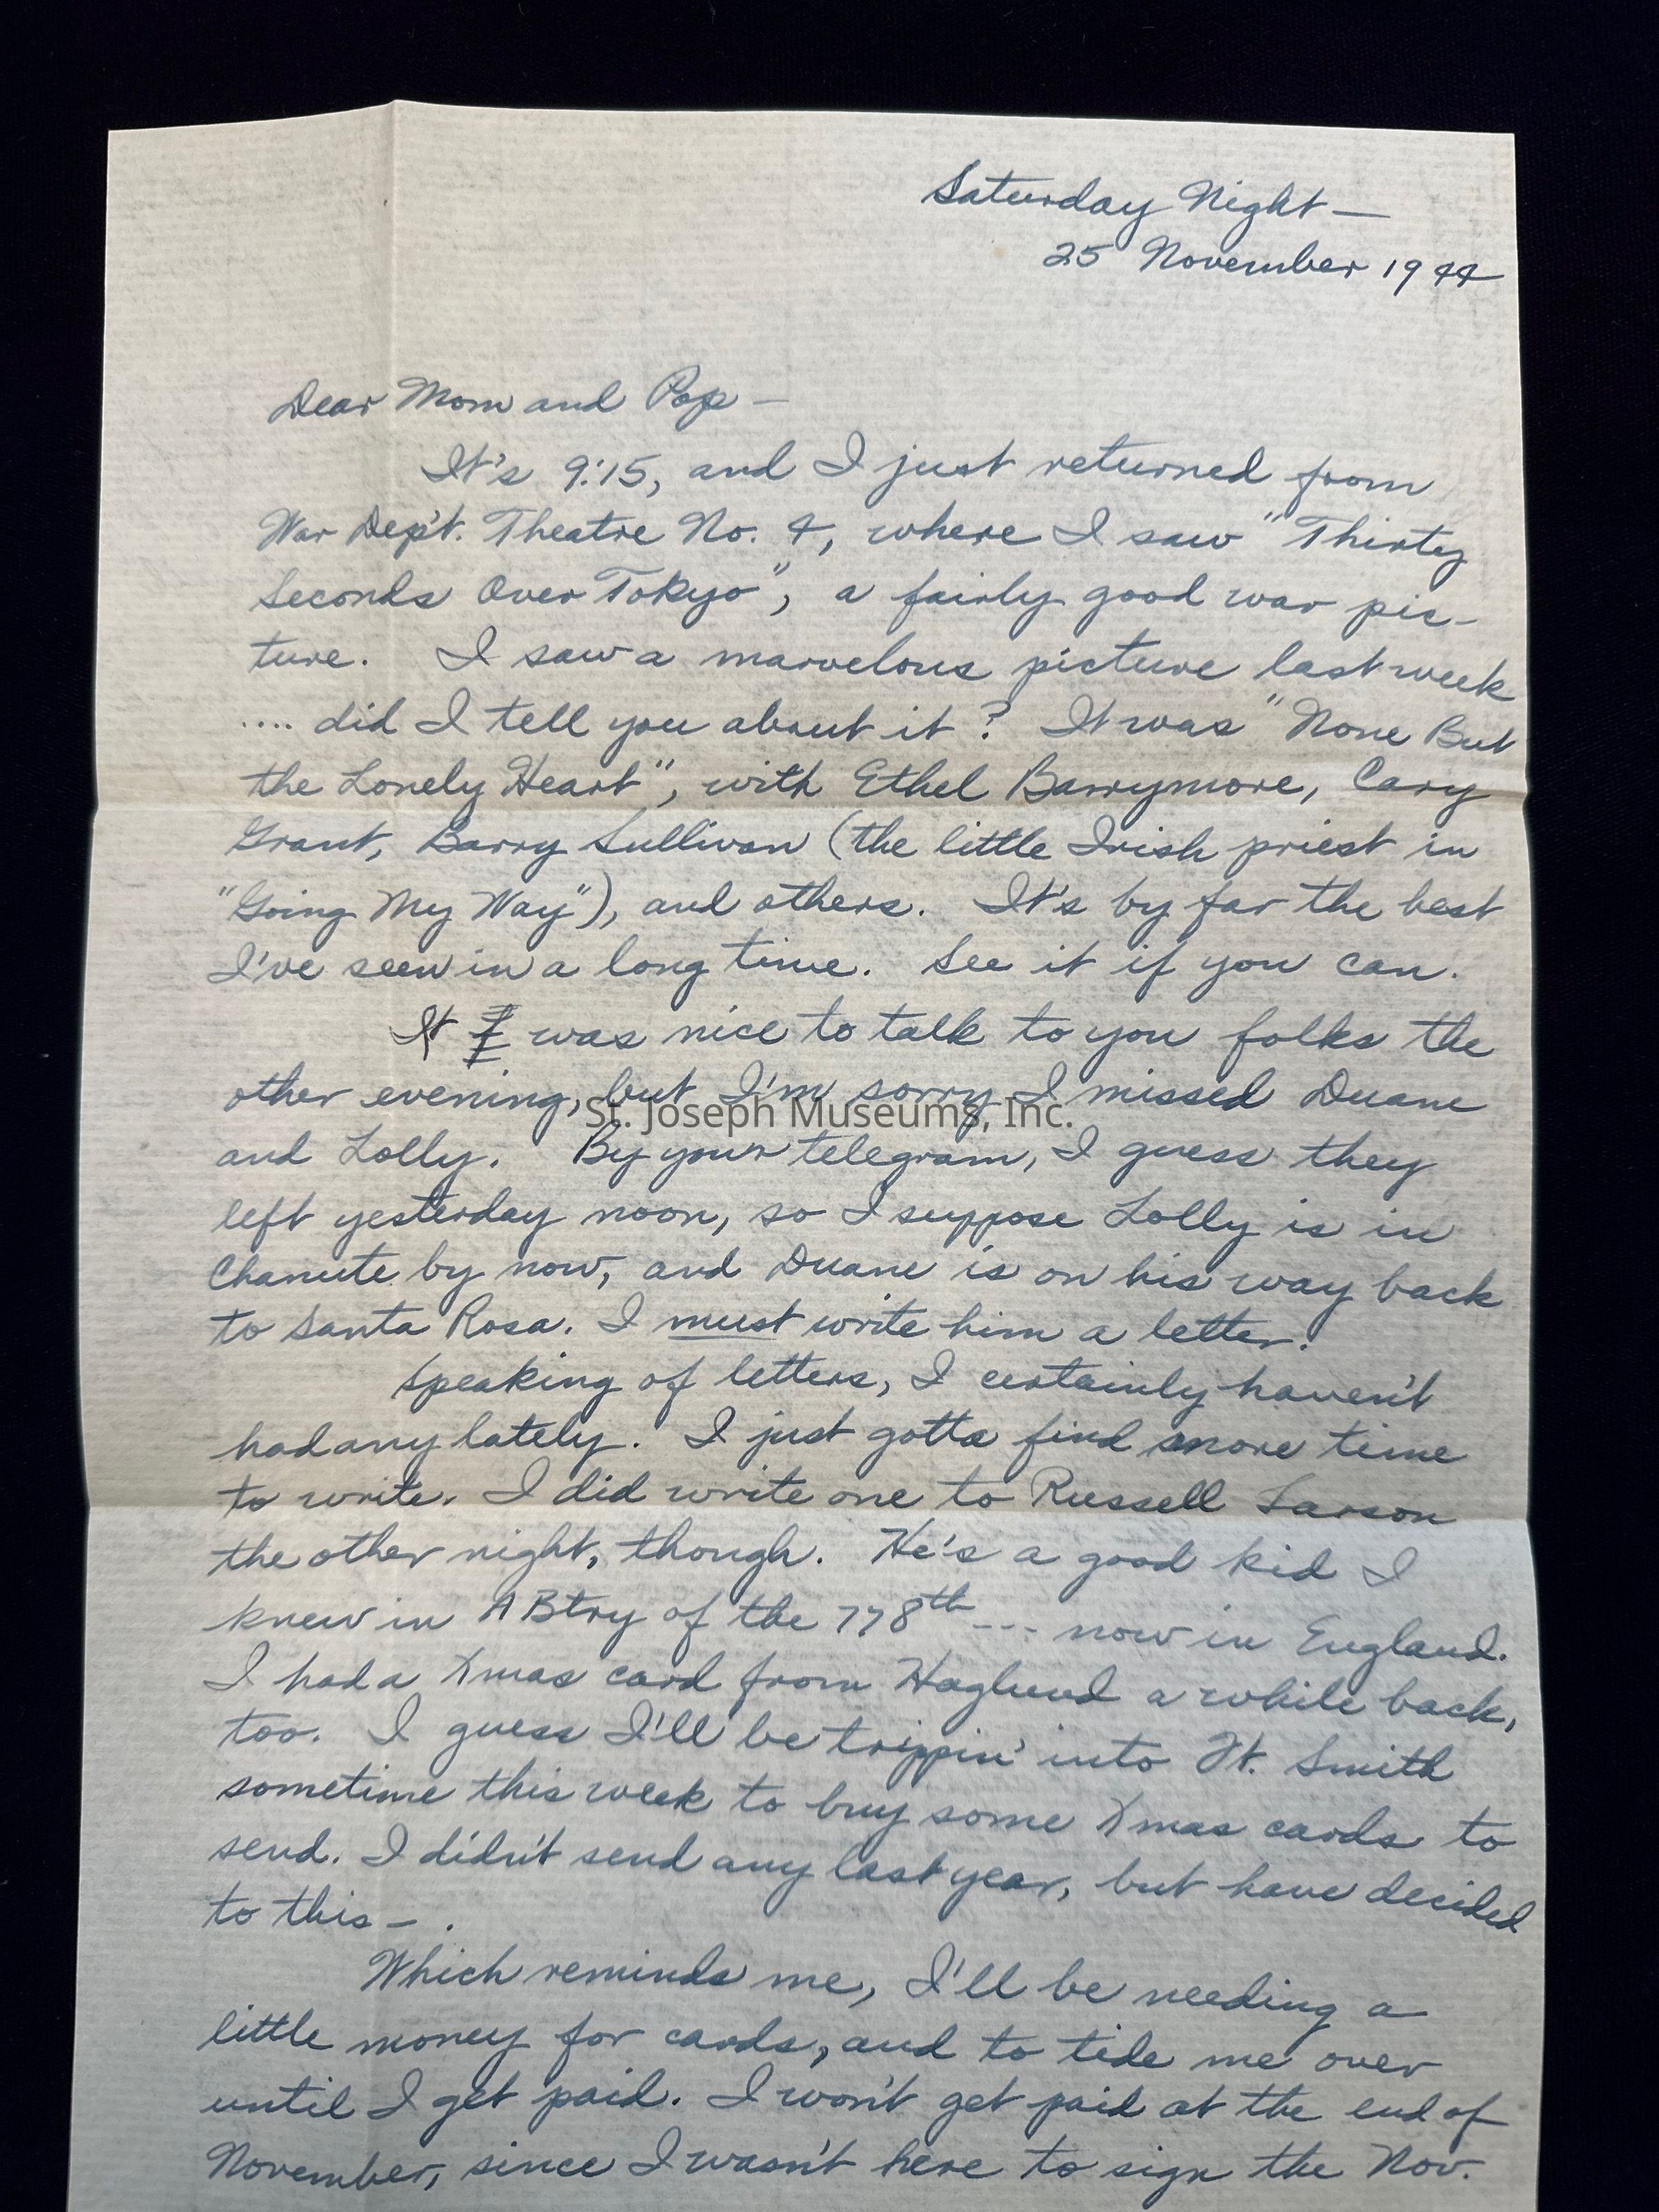 Saturday Night —
25 November 1944
Dear Mom and Pop —
It's 9:15, and I just returned from
War Dep't. Theatre No. 4, where I saw "Thirty
Seconds Over Tokyo", a fairly good war pic-
ture. I saw a marvelous picture last week
.... did I tell you about it? It was "None But
the Lonely Heart", with Ethel Barrymore, Cary
Grant, Barry Sullivan (the little Irish priest in
"Going My Way"), and others. It's by far the best
I've seen in a long time. See it if you can.
It I was nice to talk to you folks the
other evening, but I'm sorry I missed Duane
St. Joseph Museums, Inc.
and Lolly. By your telegram, I guess they
left yesterday noon, so I suppose Lolly is in
Chanute by now, and Duane is on his way back
to Santa Rosa. I must write him a letter.
Speaking of letters, I certainly haven't
had any lately. I just gotta find more time
to write. I did write one to Russell Larson
the other night, though. He's a good kid I
knew in A Btry of the 778th --- now in England.
I had a Xmas card from Haglund a while back,
too. I guess I'll be trippin' into Ft. Smith
sometime this week to buy some Xmas cards to
send. I didn't send any last year, but have decided
to this — .
Which reminds me, I'll be needing a
little money for cards, and to tide me over
until I get paid. I won't get paid at the end of
November, since I wasn't here to sign the Nov.